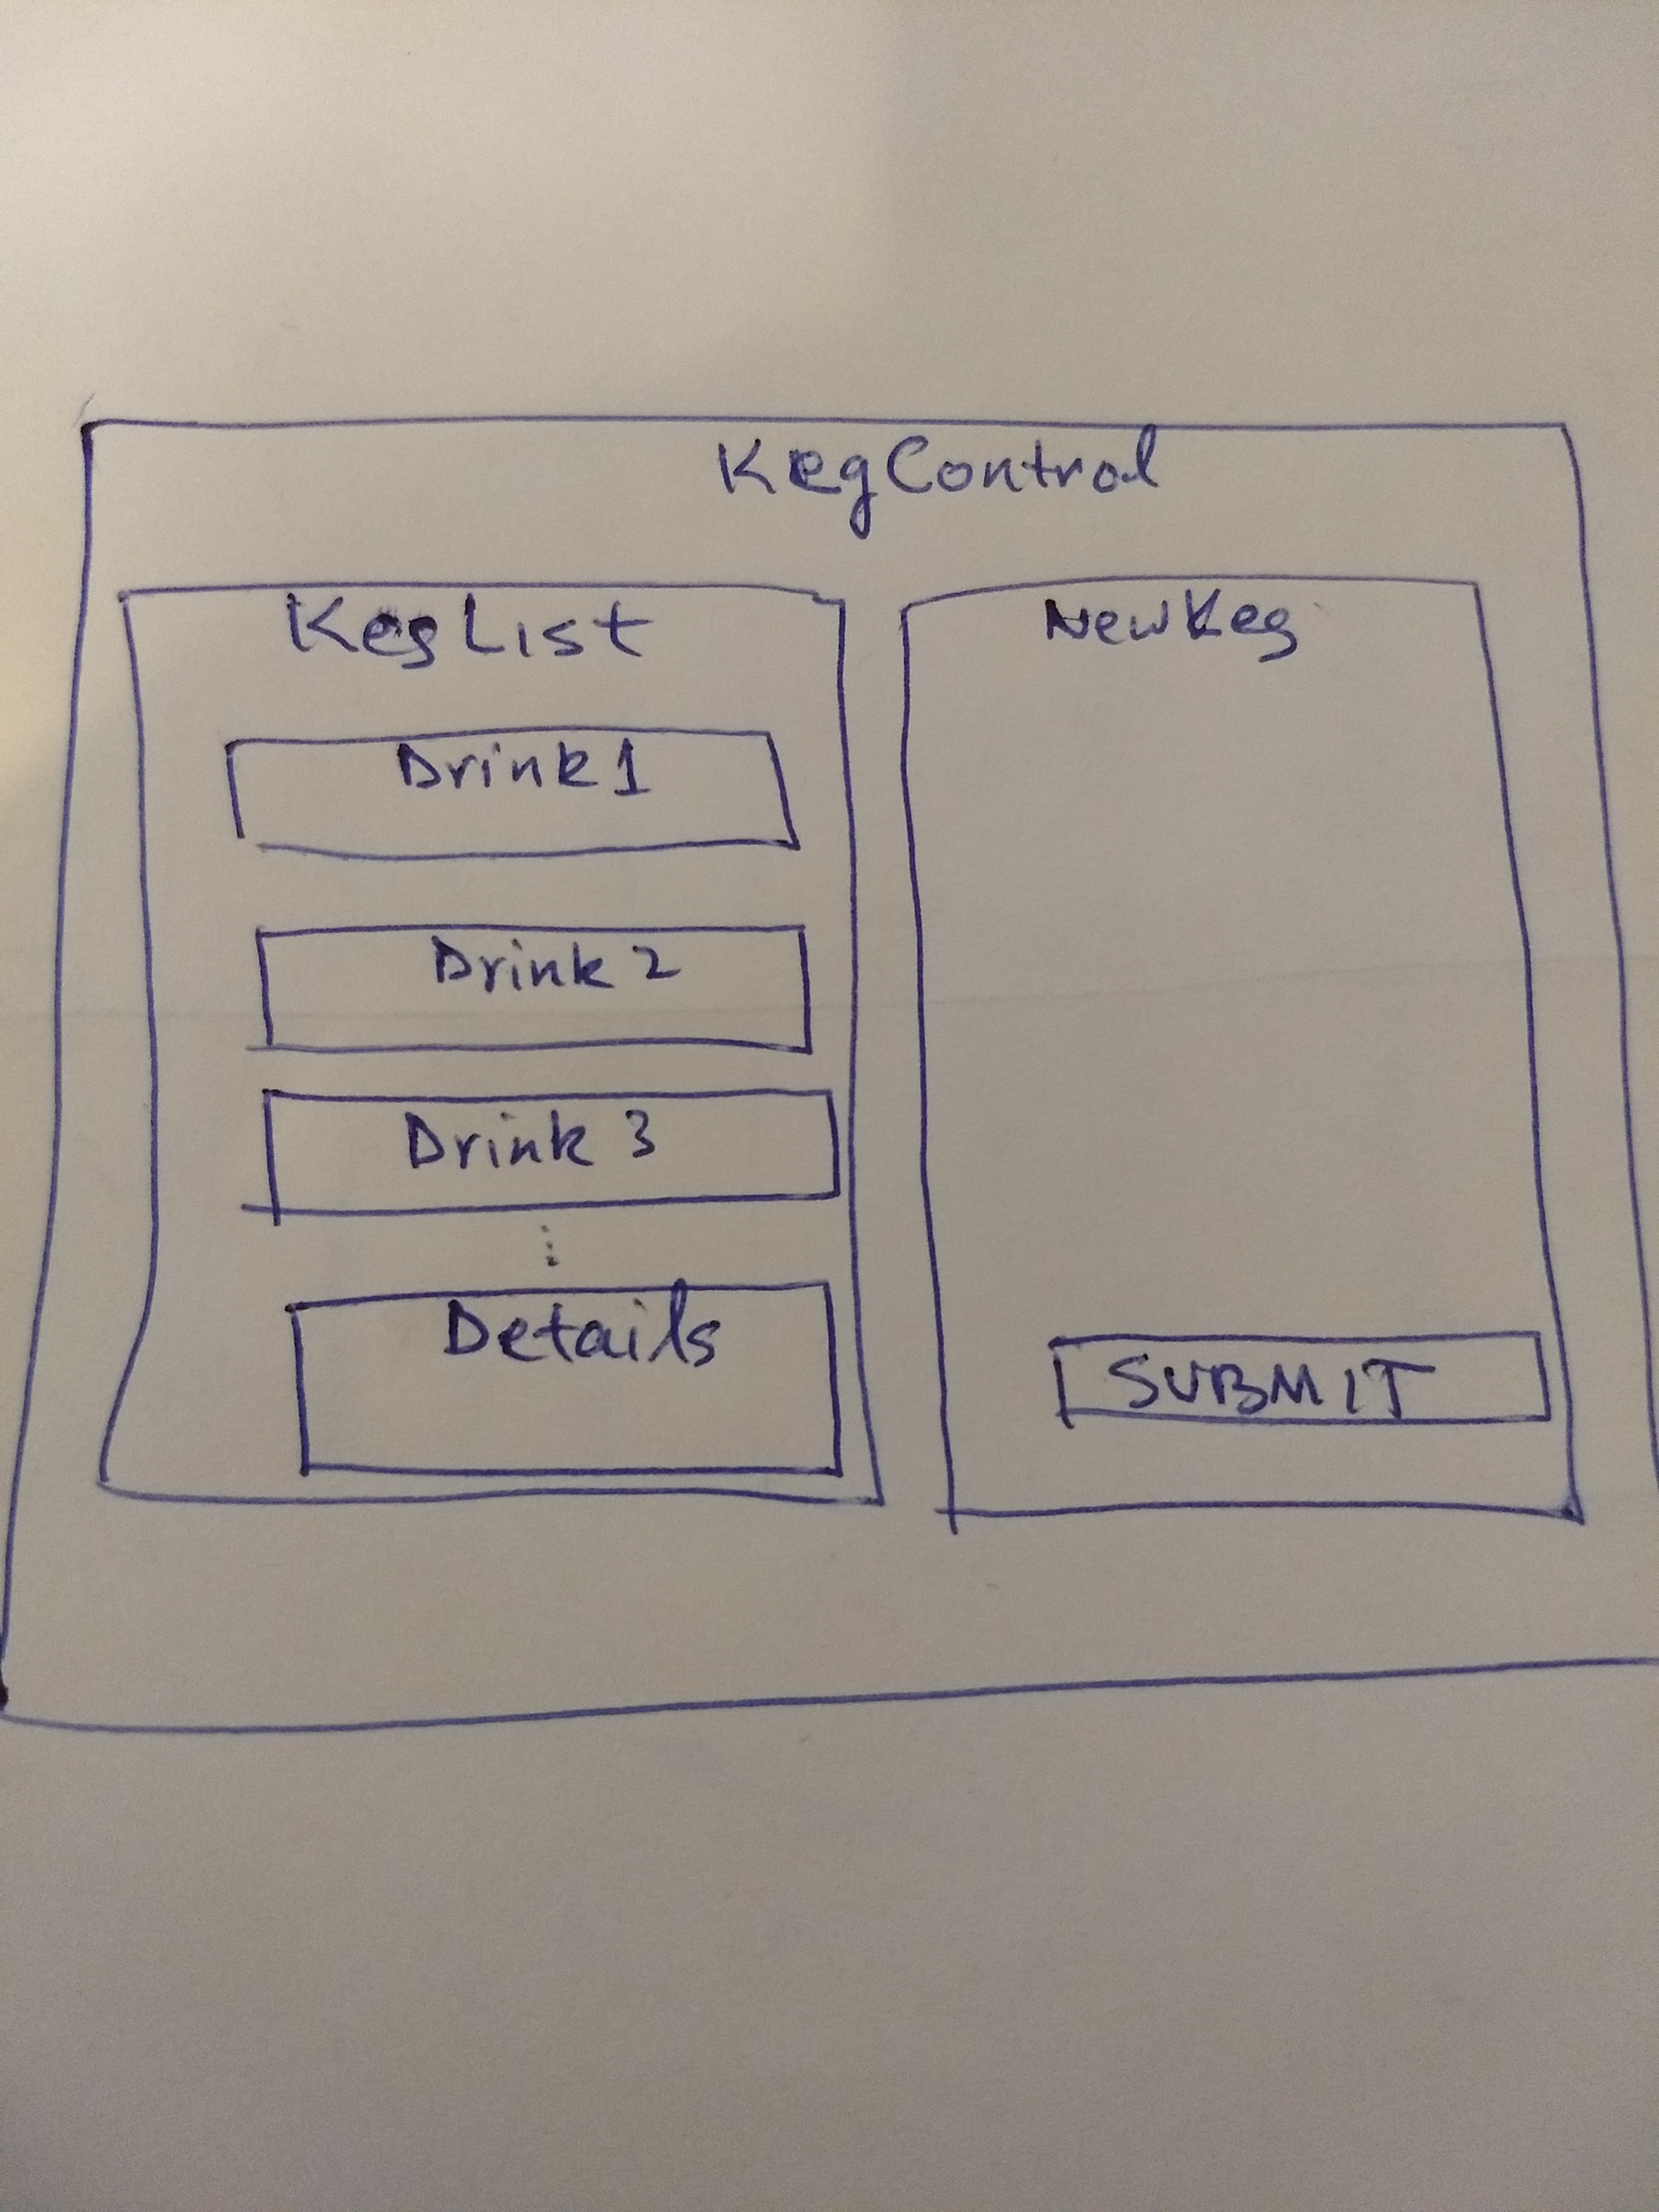 KegControl
KegList
Drink 1
Drink 2
Drink 3
⋮
Details
NewKeg
SUBMIT